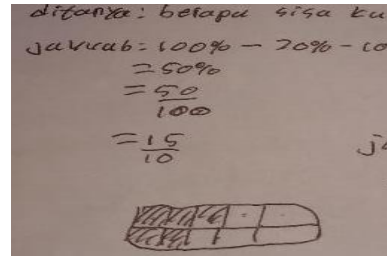 ditanya: berapa sisa ku
jawab = 100% - 20% - 10
= 50%
= 50/100
= 15/10